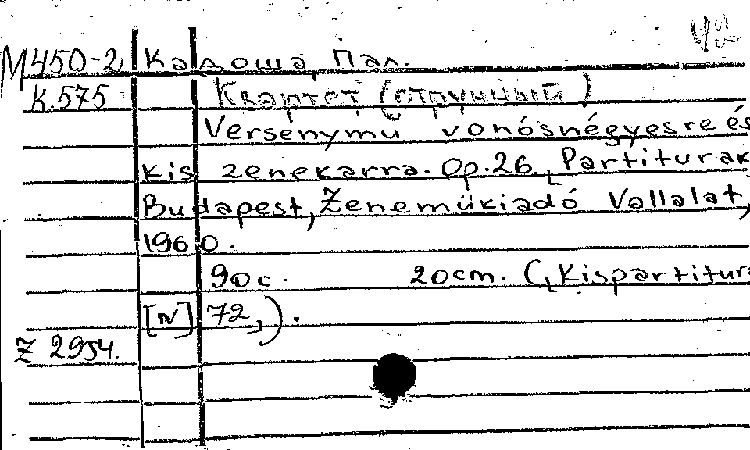 М450-2 Кадоша, Пал.
К.575 Квартет (струнный)
Versenymü vonósnégyesre és
kis zenekarra. Op. 26, Partiturak
Budapest, Zenemükiadó Vallalat,
1960.
90 c. 20 cm. (Kispartitur
[N] 72,).
Z 2954.